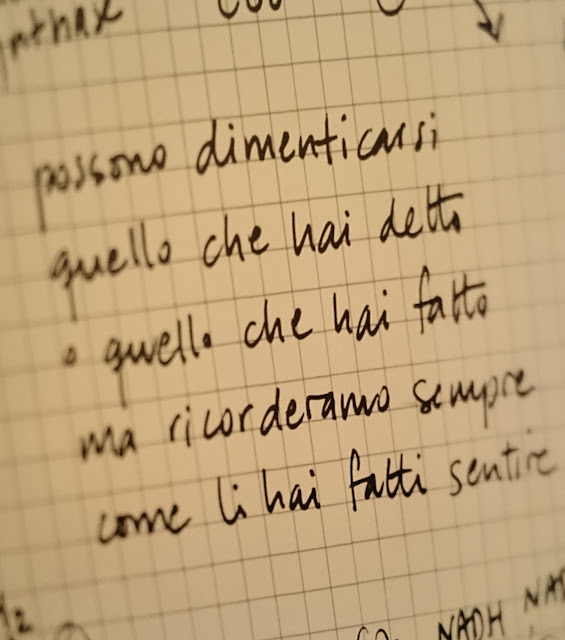 possono dimenticarsi
quello che hai detto
o quello che hai fatto
ma ricorderanno sempre
come li hai fatti sentire
NADH